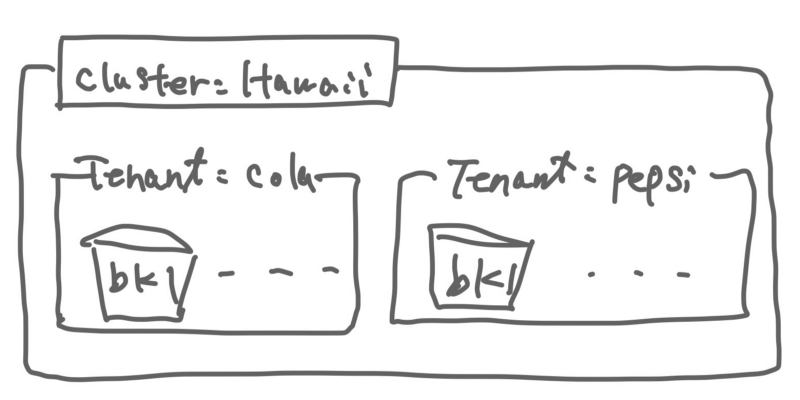 cluster = Hawaii
Tenant = cola
Tenant = pepsi
bk1
bk1